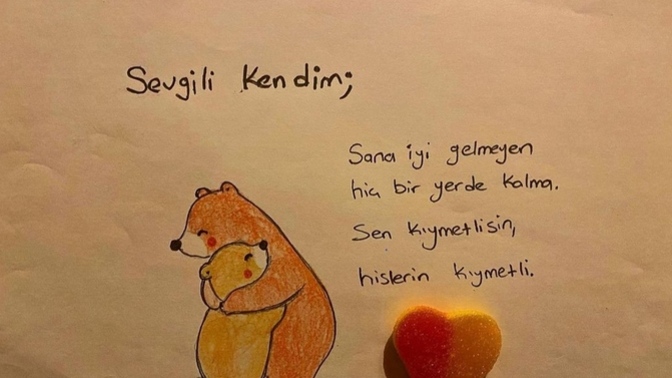 Sevgili Kendim;
Sana iyi gelmeyen
hiç bir yerde kalma.
Sen kıymetlisin,
hislerin kıymetli.